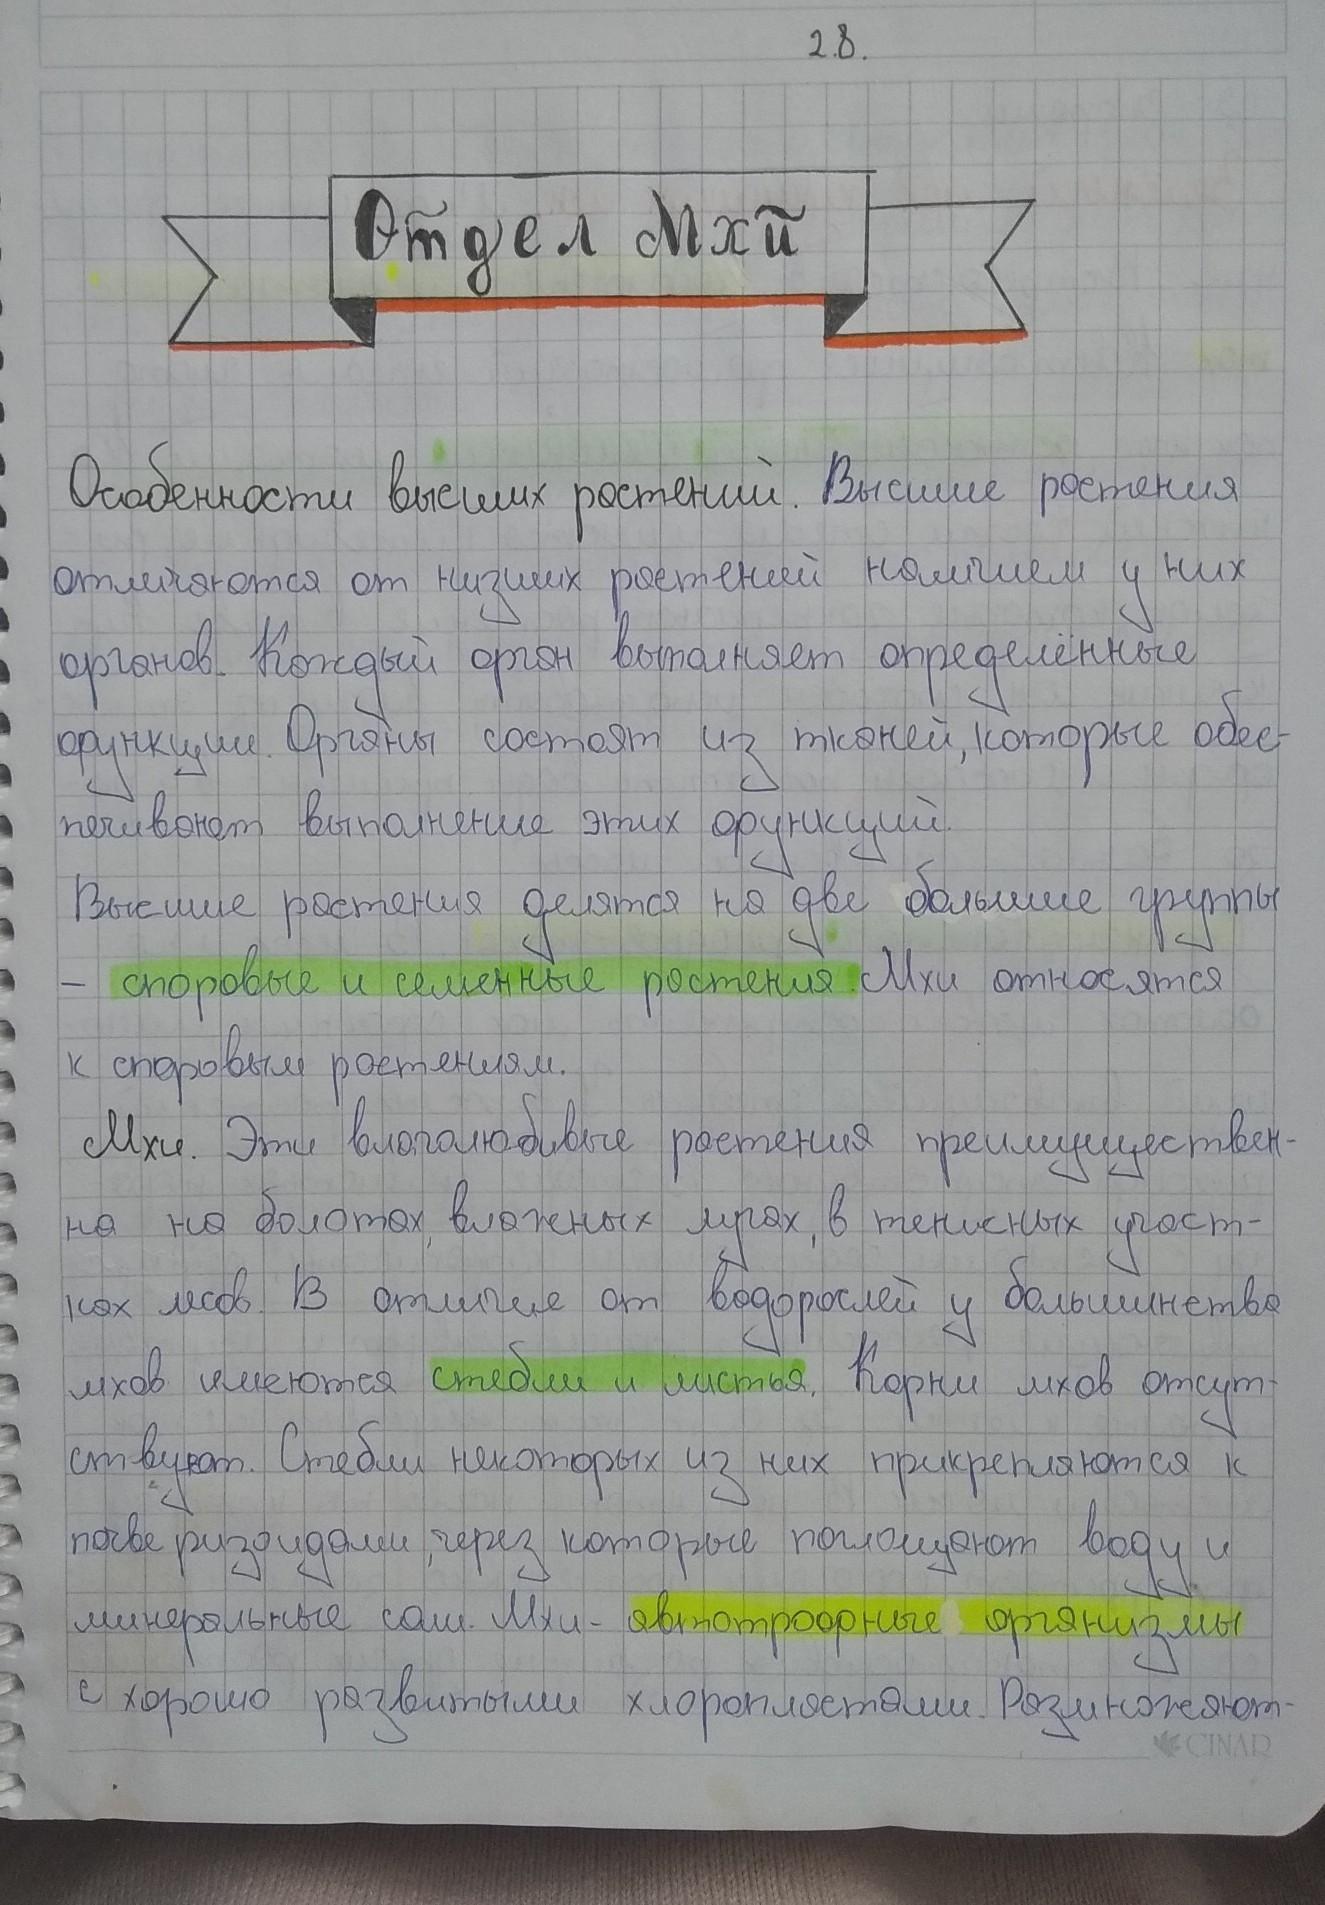 2.8.
Отдел Мхи
Особенности высших растений. Высшие растения
отличаются от низших растений наличием у них
органов. Каждый орган выполняет определённые
функции. Органы состоят из тканей, которые обес-
печивают выполнение этих функций.
Высшие растения делятся на две большие группы
- споровые и семенные растения. Мхи относятся
к споровым растениям.
Мхи. Эти влаголюбивые растения преимуществен-
но на болотах, влажных лугах, в тенисных участ-
ках лесов. В отличие от водорослей у большинства
мхов имеются стебли и листья. Корни мхов отсут-
ствуют. Стебли некоторых из них прикрепляются к
почве ризоидами, через которые поглощают воду и
минеральные соли. Мхи - автотрофные организмы
с хорошо развитыми хлоропластами. Размножают-
CINAR